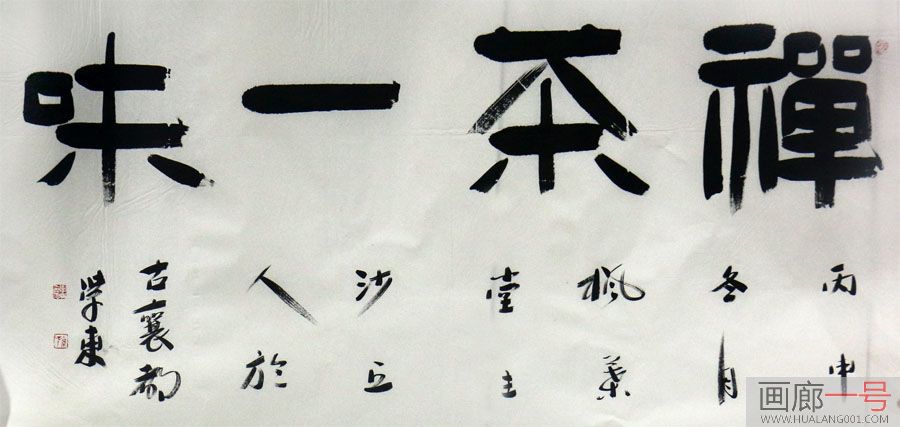 禪茶一味
丙申
冬月
楓葉
堂主
沙丘
人於
古襄都
學東
画廊一号
WWW.HUALANG001.COM